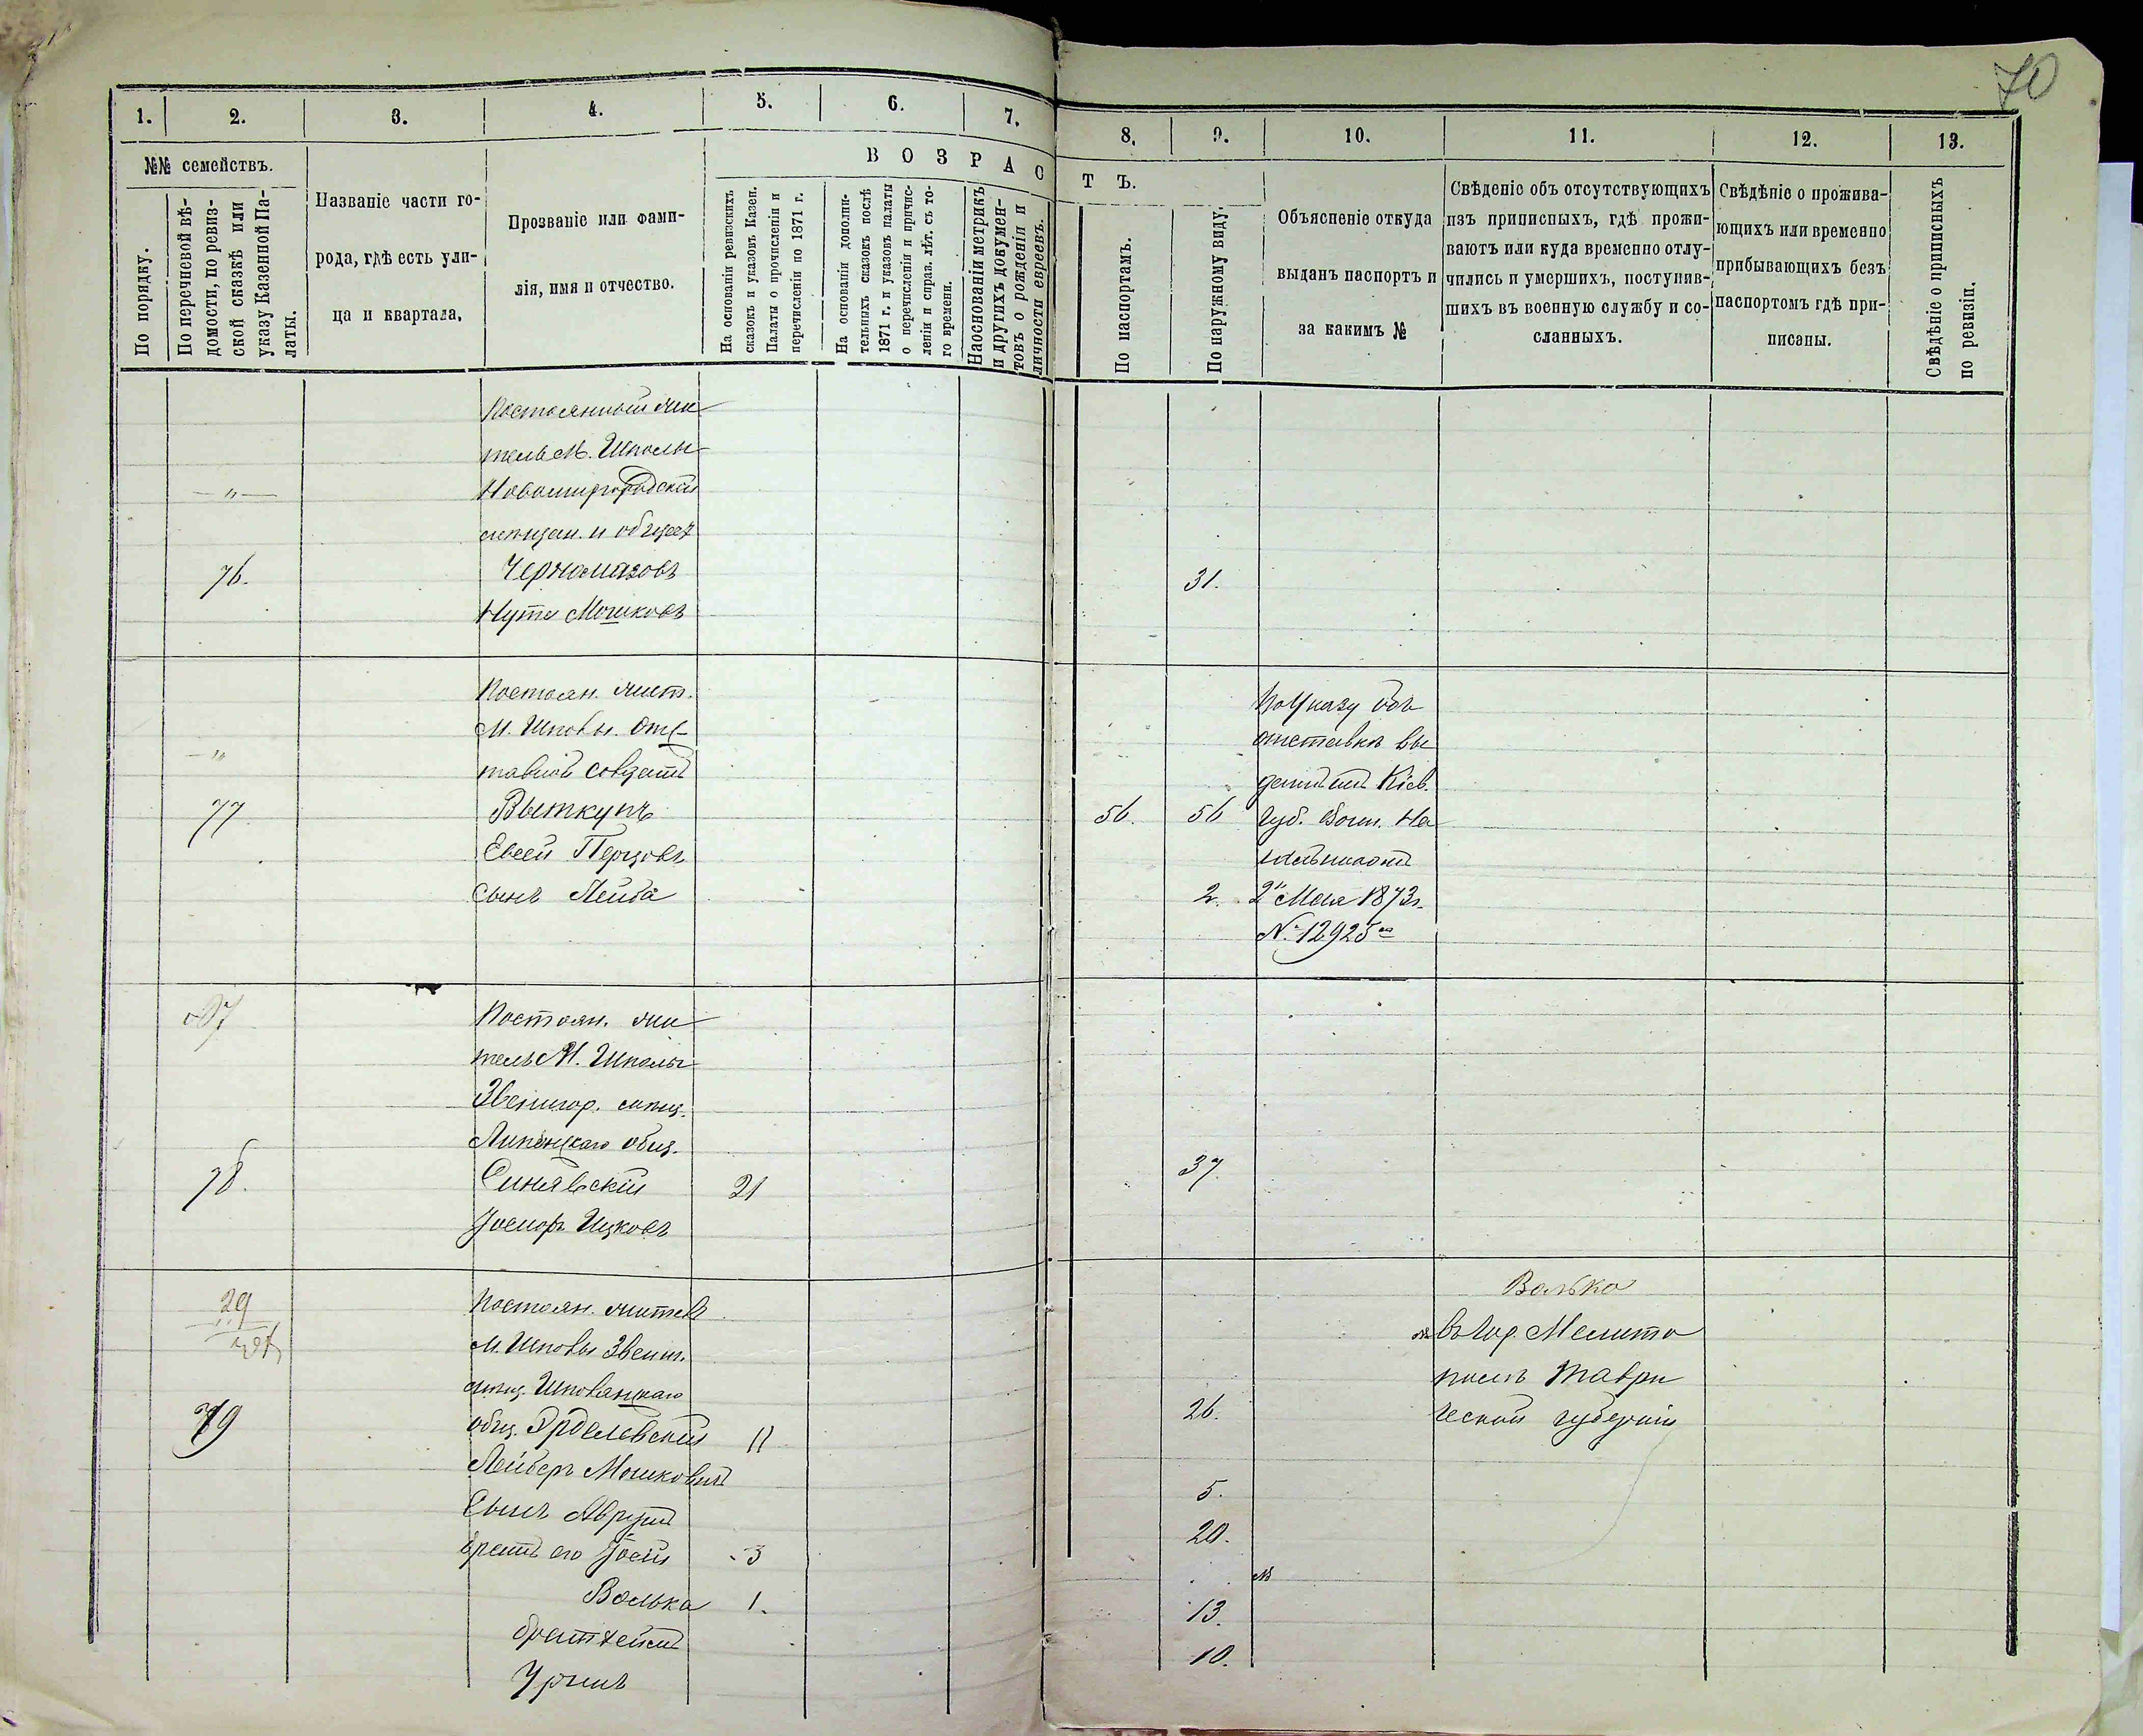 70
1. 2. 3. 4. 5. 6. 7. 8. 9. 10. 11. 12. 13.
№№ семействъ.
По порядку.
По перечневой вѣ-
домости, по ревиз-
ской сказкѣ или
указу Казенной Па-
латы.
Названіе части го-
рода, гдѣ есть ули-
ца и квартала.
Прозваніе или фами-
лія, имя и отчество.
ВОЗРАС
ТЪ.
На основаніи ревизскихъ
сказокъ и указовъ Казен.
Палаты о причисленіи и
перечисленіи по 1871 г.
На основаніи дополни-
тельныхъ сказокъ послѣ
1871 г. и указовъ палаты
о перечисленіи и причис-
леніи и справ. лѣт. съ то-
го времени.
На основаніи метрикъ
и другихъ докумен-
товъ о рожденіи и
личности евреевъ.
По паспортамъ.
По наружному виду.
Объясненіе откуда
выданъ паспортъ и
за какимъ №
Свѣденіе объ отсутствующихъ
изъ приписныхъ, гдѣ прожи-
ваютъ или куда временно отлу-
чились и умершихъ, поступив-
шихъ въ военную службу и со-
сланныхъ.
Свѣдѣніе о прожива-
ющихъ или временно
прибывающихъ безъ
паспортомъ гдѣ при-
писаны.
Свѣдѣніе о приписныхъ
по ревизіи.
Постоянный жи
тель М. Шполы
— " — Новомиргородскій
мѣщан. и общест
76. Черномазовъ 31.
Нута Мошковъ
Постоян. жит.
М. Шполы. Отс-
— " тавной солдатъ
77 Выткупъ 56. 56
Евсей Перцовъ
Сынъ Лейба 2.
По Указу объ
отставкѣ вы
данный Кіев.
Губ. Воин. На
чальникомъ
2" Мая 1873г.
№ 12925
Постоян. жи
тель М. Шполы
Звенигор. мѣщ.
Липянскаго общ.
78. Синявскій 21 37.
Іосифъ Ицковъ
29
Постоян. житель
М. Шполы Звениг.
мѣщ. Шполянскаго
79 общ. Эрделевскій 11 26.
Лейберъ Мошковичъ
Сынъ Аврумъ 5.
братъ его Іось 3 20.
Волька 1. № 13.
братъ 10.
Урынъ
Волько
въ Гор. Мелито
полѣ Таври
ческой губерніи